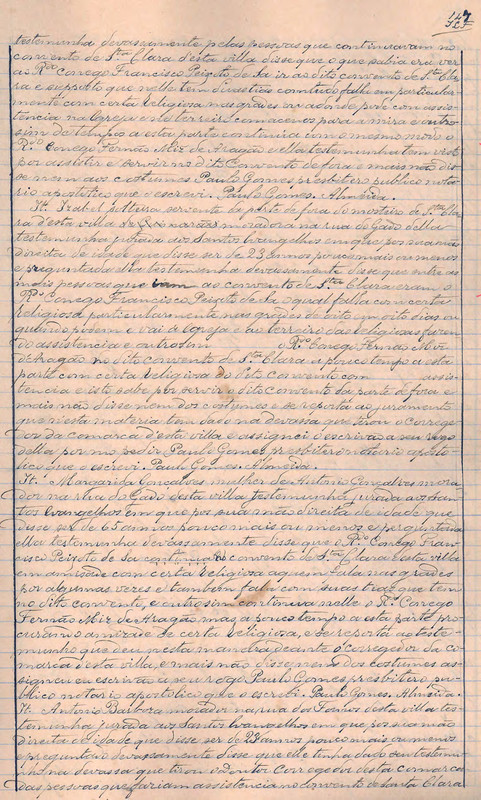 147
testemunha devassamente pelas pessoas que continuavam no
convento de S.ta Clara d'esta villa disse que o que sabia era ver
as R.do Conego Francisco Peixoto de Sa ir ao dito convento de S.ta Cla
ra e supposto que nelle tem duas tias com tudo falla em particular
mente com certa Religiosa nas grades
tencia na Igreja e no terreiro e outro
sim de tempos a esta parte continua com o mesmo modo o
R.do Conego Fernão Miz de Aragão e ella testemunha tem visto
por assistir e servir no dito Convento de fora e mais não dis
se nem aos costumes Paulo Gomes presbitero publico nota
rio apostolico que o escrevi. Paulo Gomes. Almeida.
It. Izabel solteira servente da parte de fora do mosteiro de S.ta Cla
ra d'esta villa de Guimarães moradora na rua do Gado della
testemunha jurada aos Santos Evangelhos em que poz sua mão
direita de idade que disse ser de 23 annos pouco mais ou menos
e preguntada ella testemunha devassamente disse que entre as
mais pessoas que vam ao convento de S.ta Clara eram o
R.do Conego Francisco Peixoto de Sa o qual falla com certa
religiosa particularmente nas grades de oito em oito dias ou
quando podem e vai á Igreja e ao terreiro das religiosas fazen
do assistencia e outrosim R.do Conego Fernão Miz
de Aragão no dito convento de S.ta Clara a pouco tempo a esta
parte com certa Religiosa do dito Convento com assis-
tencia e isto sabe por servir o dito convento da parte de fora e
mais não disse nem dos costumes e se reporta ao juramento
que n'esta materia tem dado na devassa que tirou o Correge
dor da comarca d'esta villa e assignei o escrivão a seu rogo
della por mo pedir Paulo Gomes presbitero notario aposto
lico que o escrevi. Paulo Gomes. Almeida.
It. Margarida Gonçalves mulher de Antonio Gonçalves mora
dor na rua do Gado desta villa testemunha jurada aos San
tos Evangelhos em que poz sua mão direita de idade que
disse ser de 65 annos pouco mais ou menos e perguntada
ella testemunha devassamente disse que o R.do Conego Fran
cisco Peixoto de Sa continua o convento de S.ta Clara d'esta villa
em amisade com certa religiosa a quem falla nas grades
por algumas vezes e tambem falla com suas tias que tem
no dito convento, e outrosim continua nelle o R.do Conego
Fernão Miz de Aragão, mas a pouco tempo a esta parte pro
curam a amisade de certa religiosa, e se reporta ao teste
munho que deu nesta mandra deante o corregedor da co
marca d'esta villa, e mais não disse nem dos costumes as
signei eu escrivão a seu rogo Paulo Gomes presbitero pu-
blico notario apostolico que o escrevi. Paulo Gomes. Almeida.
It. Antonio Barbosa morador na rua dos Fornos desta villa tes-
temunha jurada aos Santos Evangelhos em que poz sua mão
direita de idade que disse ser de 23 annos pouco mais ou menos
e preguntado devassamente disse que elle tinha dado seu testemu
nho na devassa que tirou o doutor Corregedor desta comarca
das pessoas que faziam assistencia no convento de Santa Clara